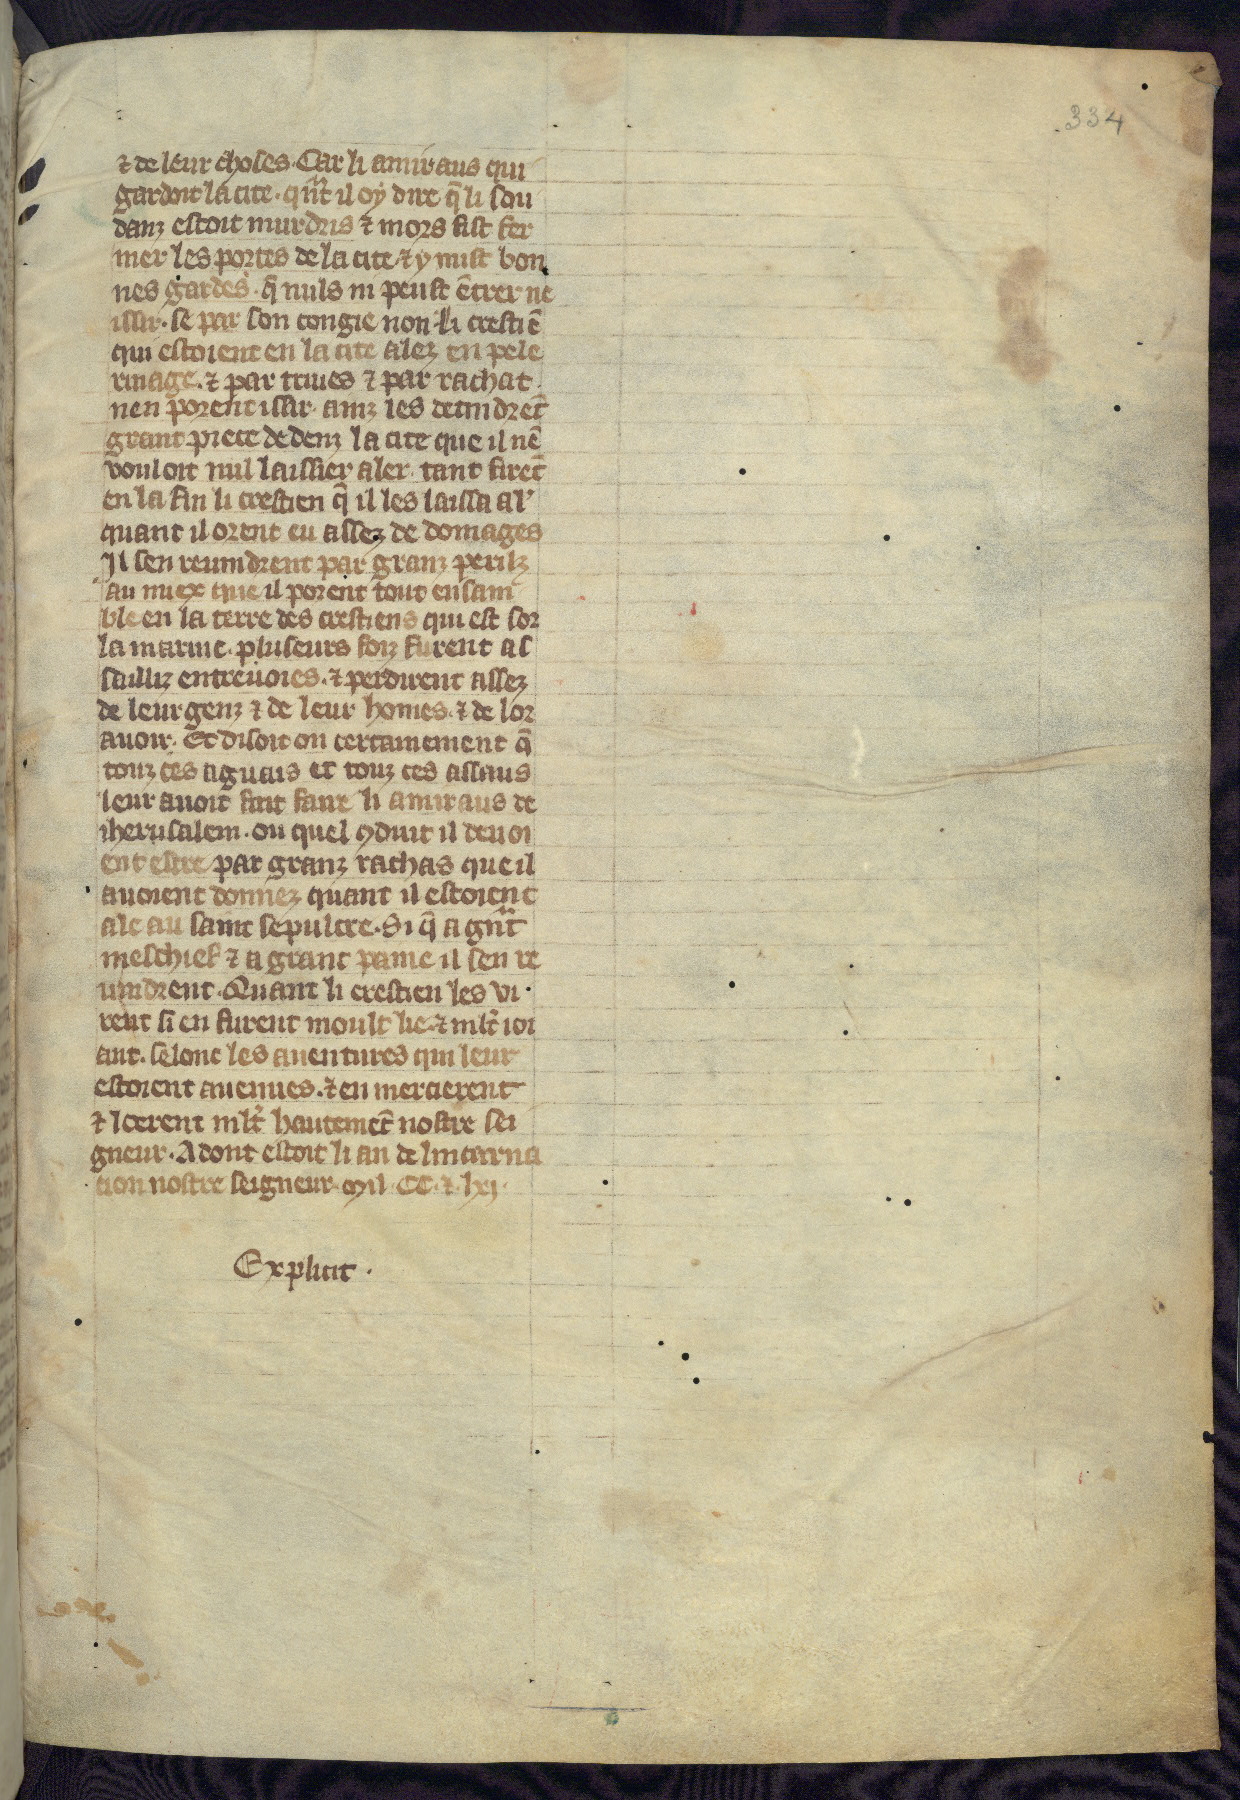 334
⁊ de leur choses. Car li amiraus qui
gardoit la cite. qñt il oy dire q̃ li sou
danz estoit murdris ⁊ mors fist fer
mer les portes de la cite ⁊ y mist bon
nes gardes. q̃ nuls ni peust ẽtrer ne
issir. se par son congie non. Li crestiẽ
qui estoient en la cite alez en pele
rinage. ⁊ par triues ⁊ par rachat.
nen porent issir. ainz les detindrẽt
grant piece dedenz la cite que il nẽ
vouloit nul laissier aler. tant firẽt
en la fin li crestien q̃ il les laissa al'
quant il orent eu assez de domages
Il sen reuindrent par granz perilz
au miex que il porent tout ensam
ble en la terre des crestiens qui est sor
la marine. pluseurs foiz furent as
sailliz entreuoies. ⁊ perdirent assez
de leur genz ⁊ de leur homes. ⁊ de lor
auoir. Et disoit on certainement q̃
touz ces aguais et touz ces assaus
leur auoit fait faire li amiraus de
iherusalem. ou quel ꝯduit il deuoi
ent estre par granz rachas que il
auoient donnez quant il estoient
ale au saint sepulcre. Si q̃ a gñt
meschief ⁊ a grant paine il sen re
uindrent. Quant li crestien les vi
rent si en furent moult lie ⁊ ml̃t ioi
ant. selonc les auentures qui leur
estoient auenues. ⁊ en mercierent
⁊ loerent ml̃t hautemẽt nostre sei
gneur. Adont estoit li an de lincarna
cion nostre seigneur. mil. CC. ⁊. lxj.
Explicit.